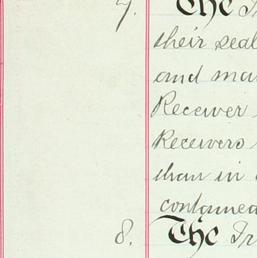 7. The
their seal
and ma
Receiver
Receivers
than in
contained
8. The Tr